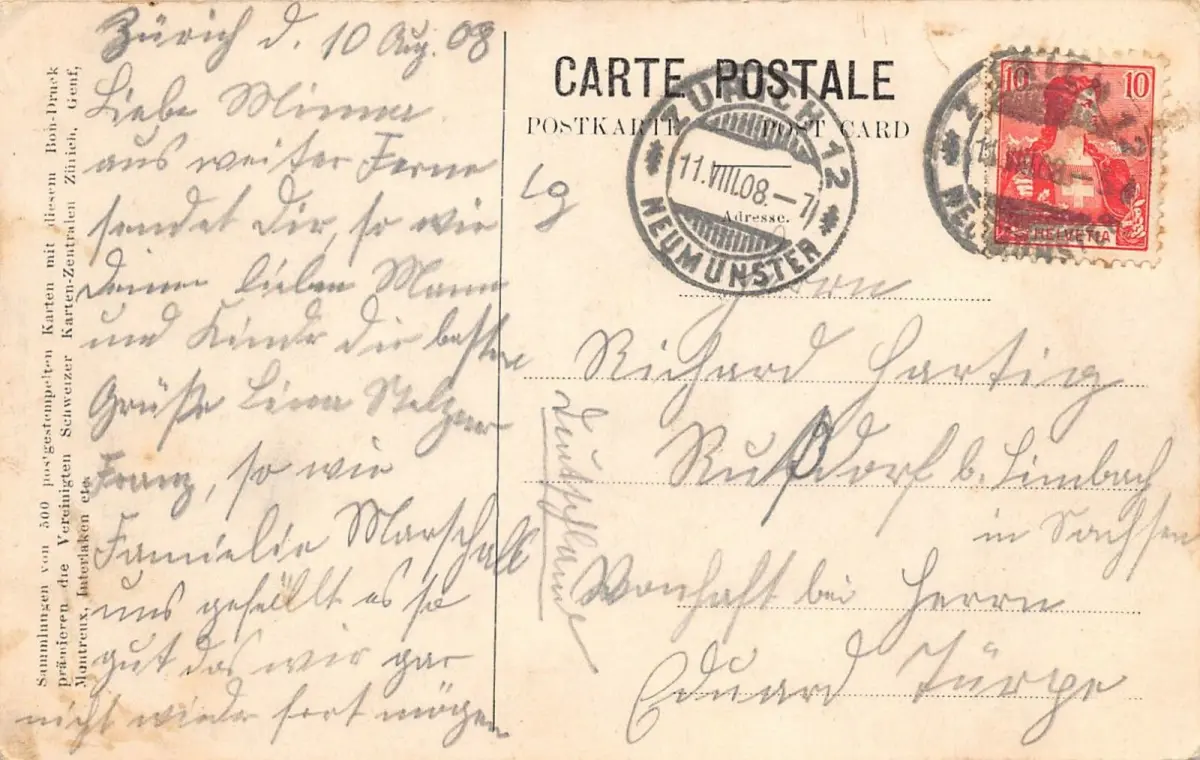 Zürich d. 10 Aug. 08
Liebe Minna
aus weiter Ferne
sendet Dir, so wie
Deinen lieben Mann
und Kinde die besten
Grüße Lina Stelzner
Franz, so wie
Familie Marschall
uns gefällt es so
gut das wir gar
nicht wieder fort mögen
Sammlungen von 500 postgestempelten Karten mit diesem Bon-Druck
prämieren die Vereinigten Schweizer Karten-Zentralen Zürich, Genf,
Montreux, Interlaken etc.
CARTE POSTALE
POSTKARTE POST CARD
Adresse.
ZÜRICH 12
11.VIII.08.–7
NEUMÜNSTER
10 10
HELVETIA
ZÜRICH 12
11.VIII.08.–
NEUMÜNSTER
Herrn
Richard Hartig
Rußdorf b. Limbach
in Sachsen
Wonhaft bei Herrn
Eduard Türpe
Deutschland